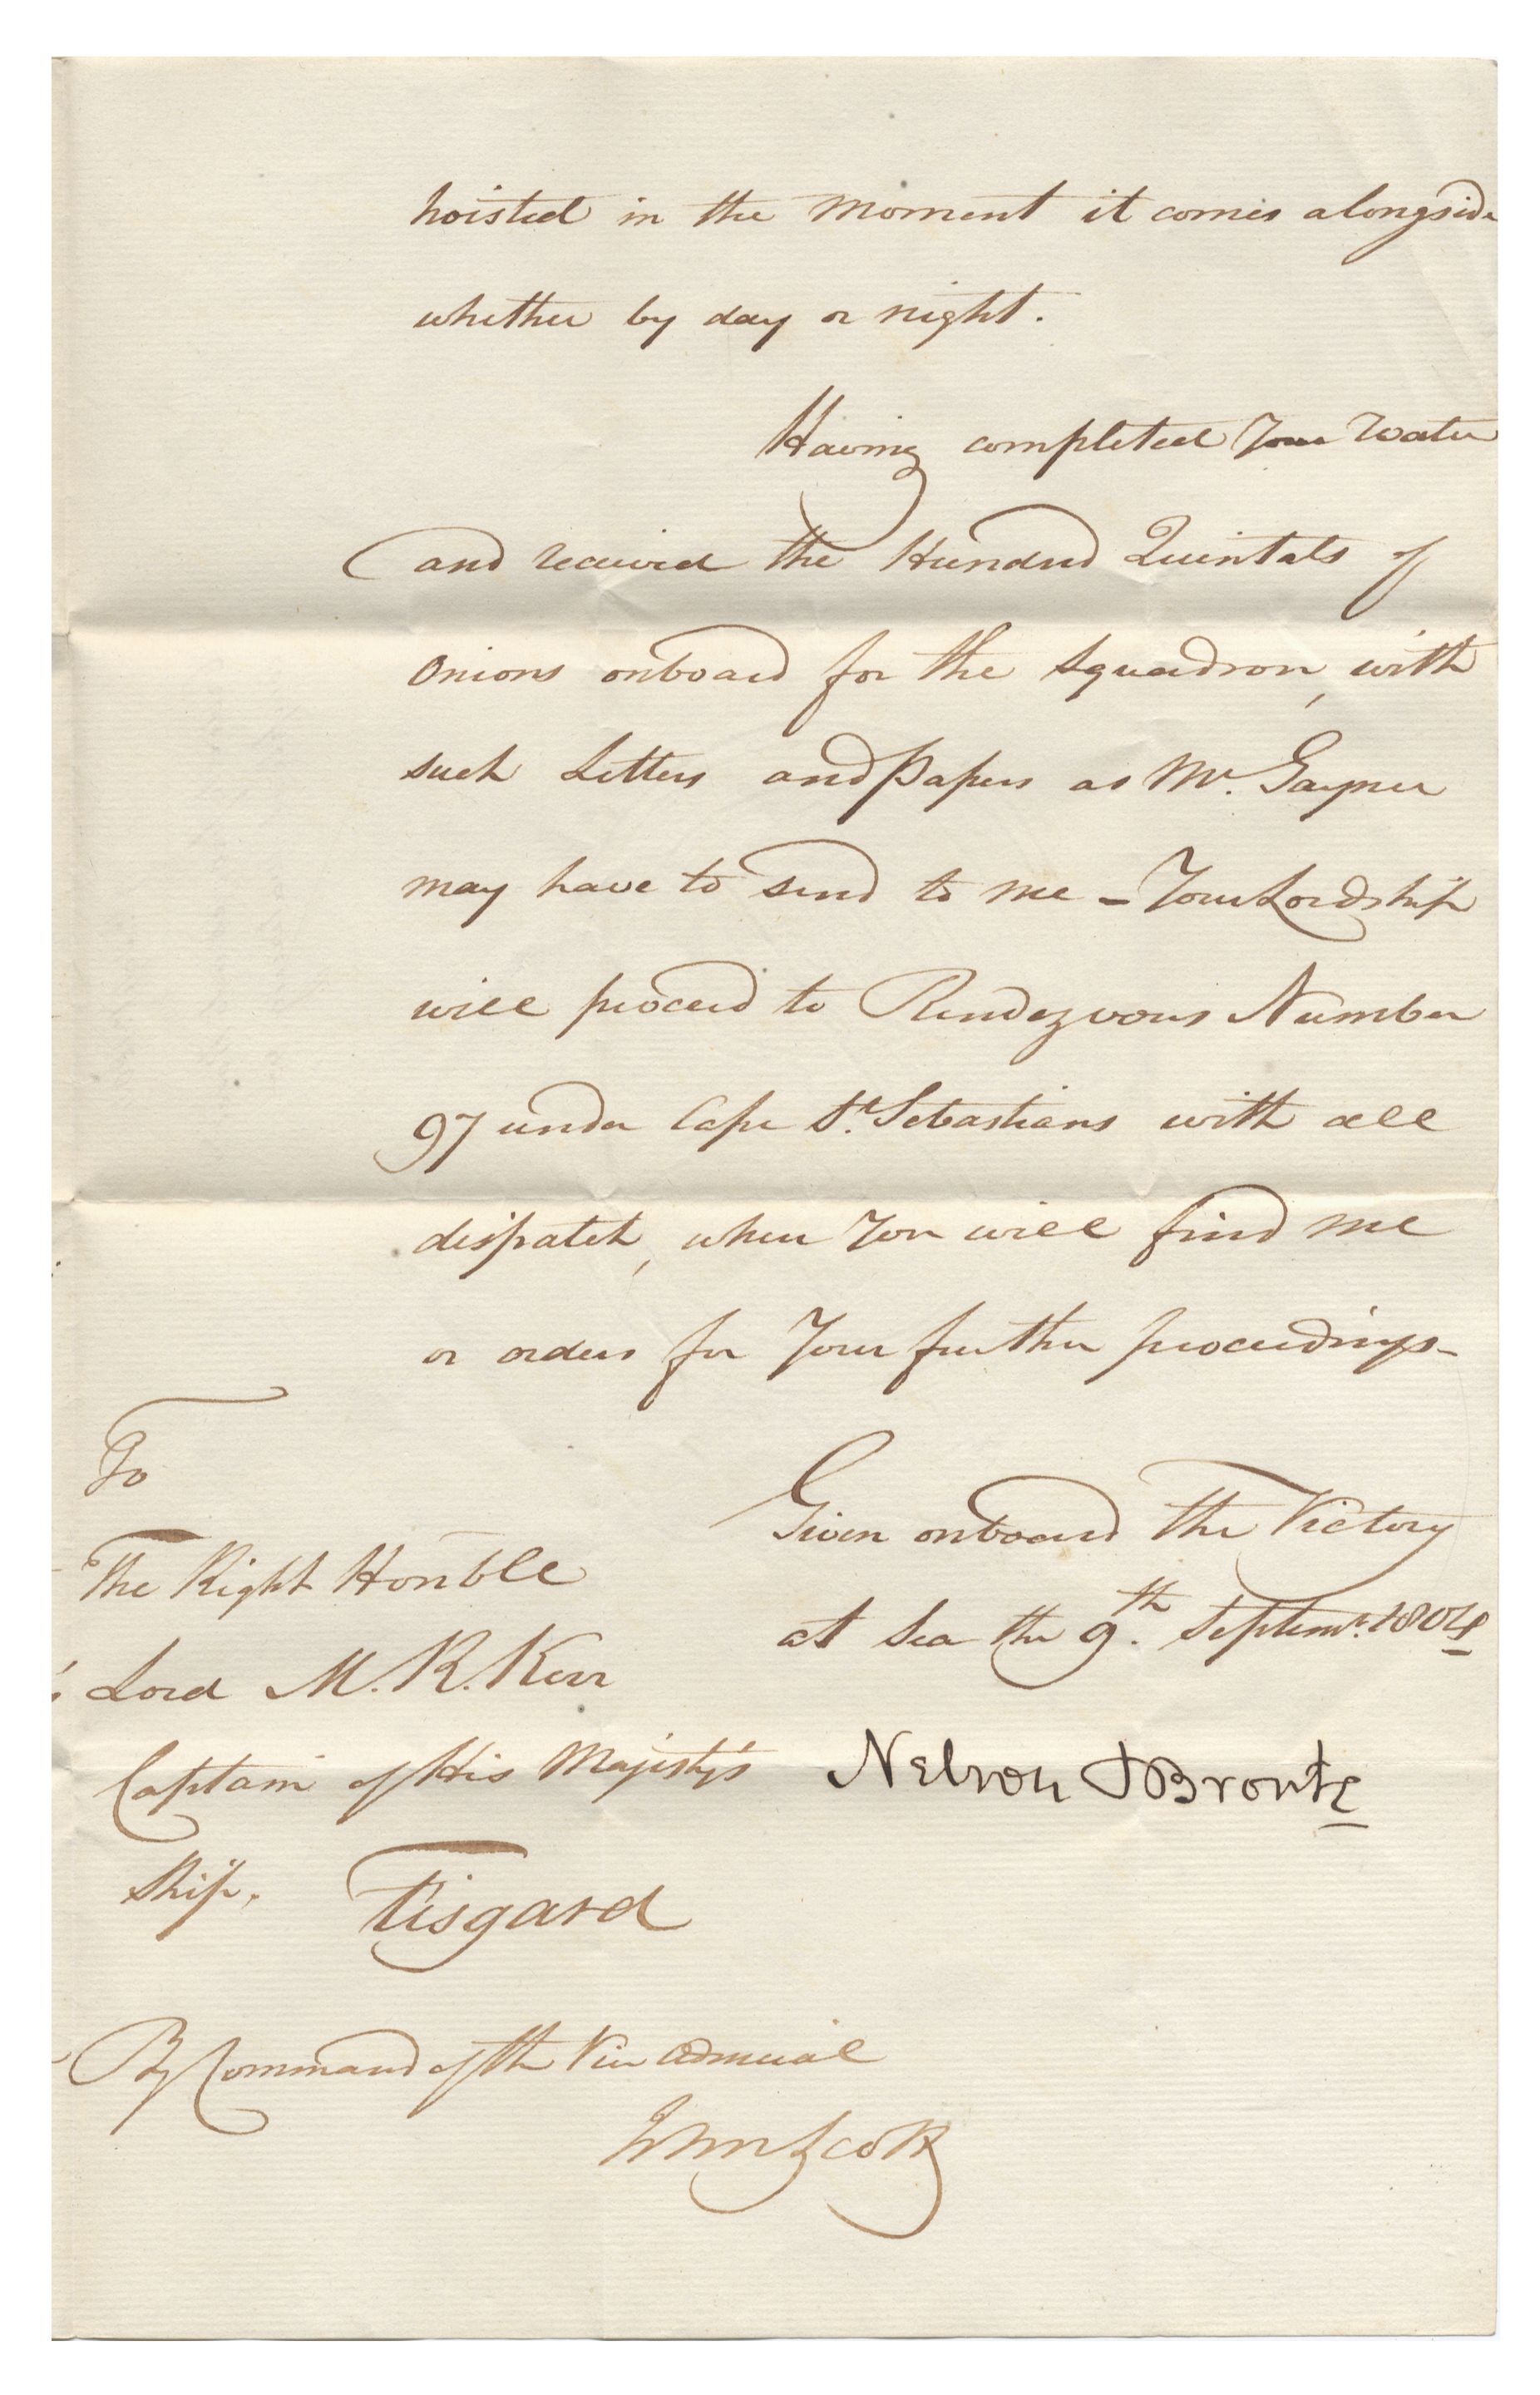 hoisted in the moment it comes alongside
whether by day or night.
Having completed Your Water
and received the Hundred Quintals of
Onions onboard for the Squadron, with
such Letters and Papers as Mr. Gayner
may have to send to me – Your Lordship
will proceed to Rendezvous Number
97 under Cape St. Sebastians with all
dispatch, when You will find me
or orders for Your further proceedings –
To
The Right Honble
Lord M. R. Kerr
Captain of His Majesty's
Ship.
Fisgard
Given onboard the Victory
at Sea the 9th. Septemr. 1804
Nelson & Bronte
By Command of the Vice Admiral
John Scott